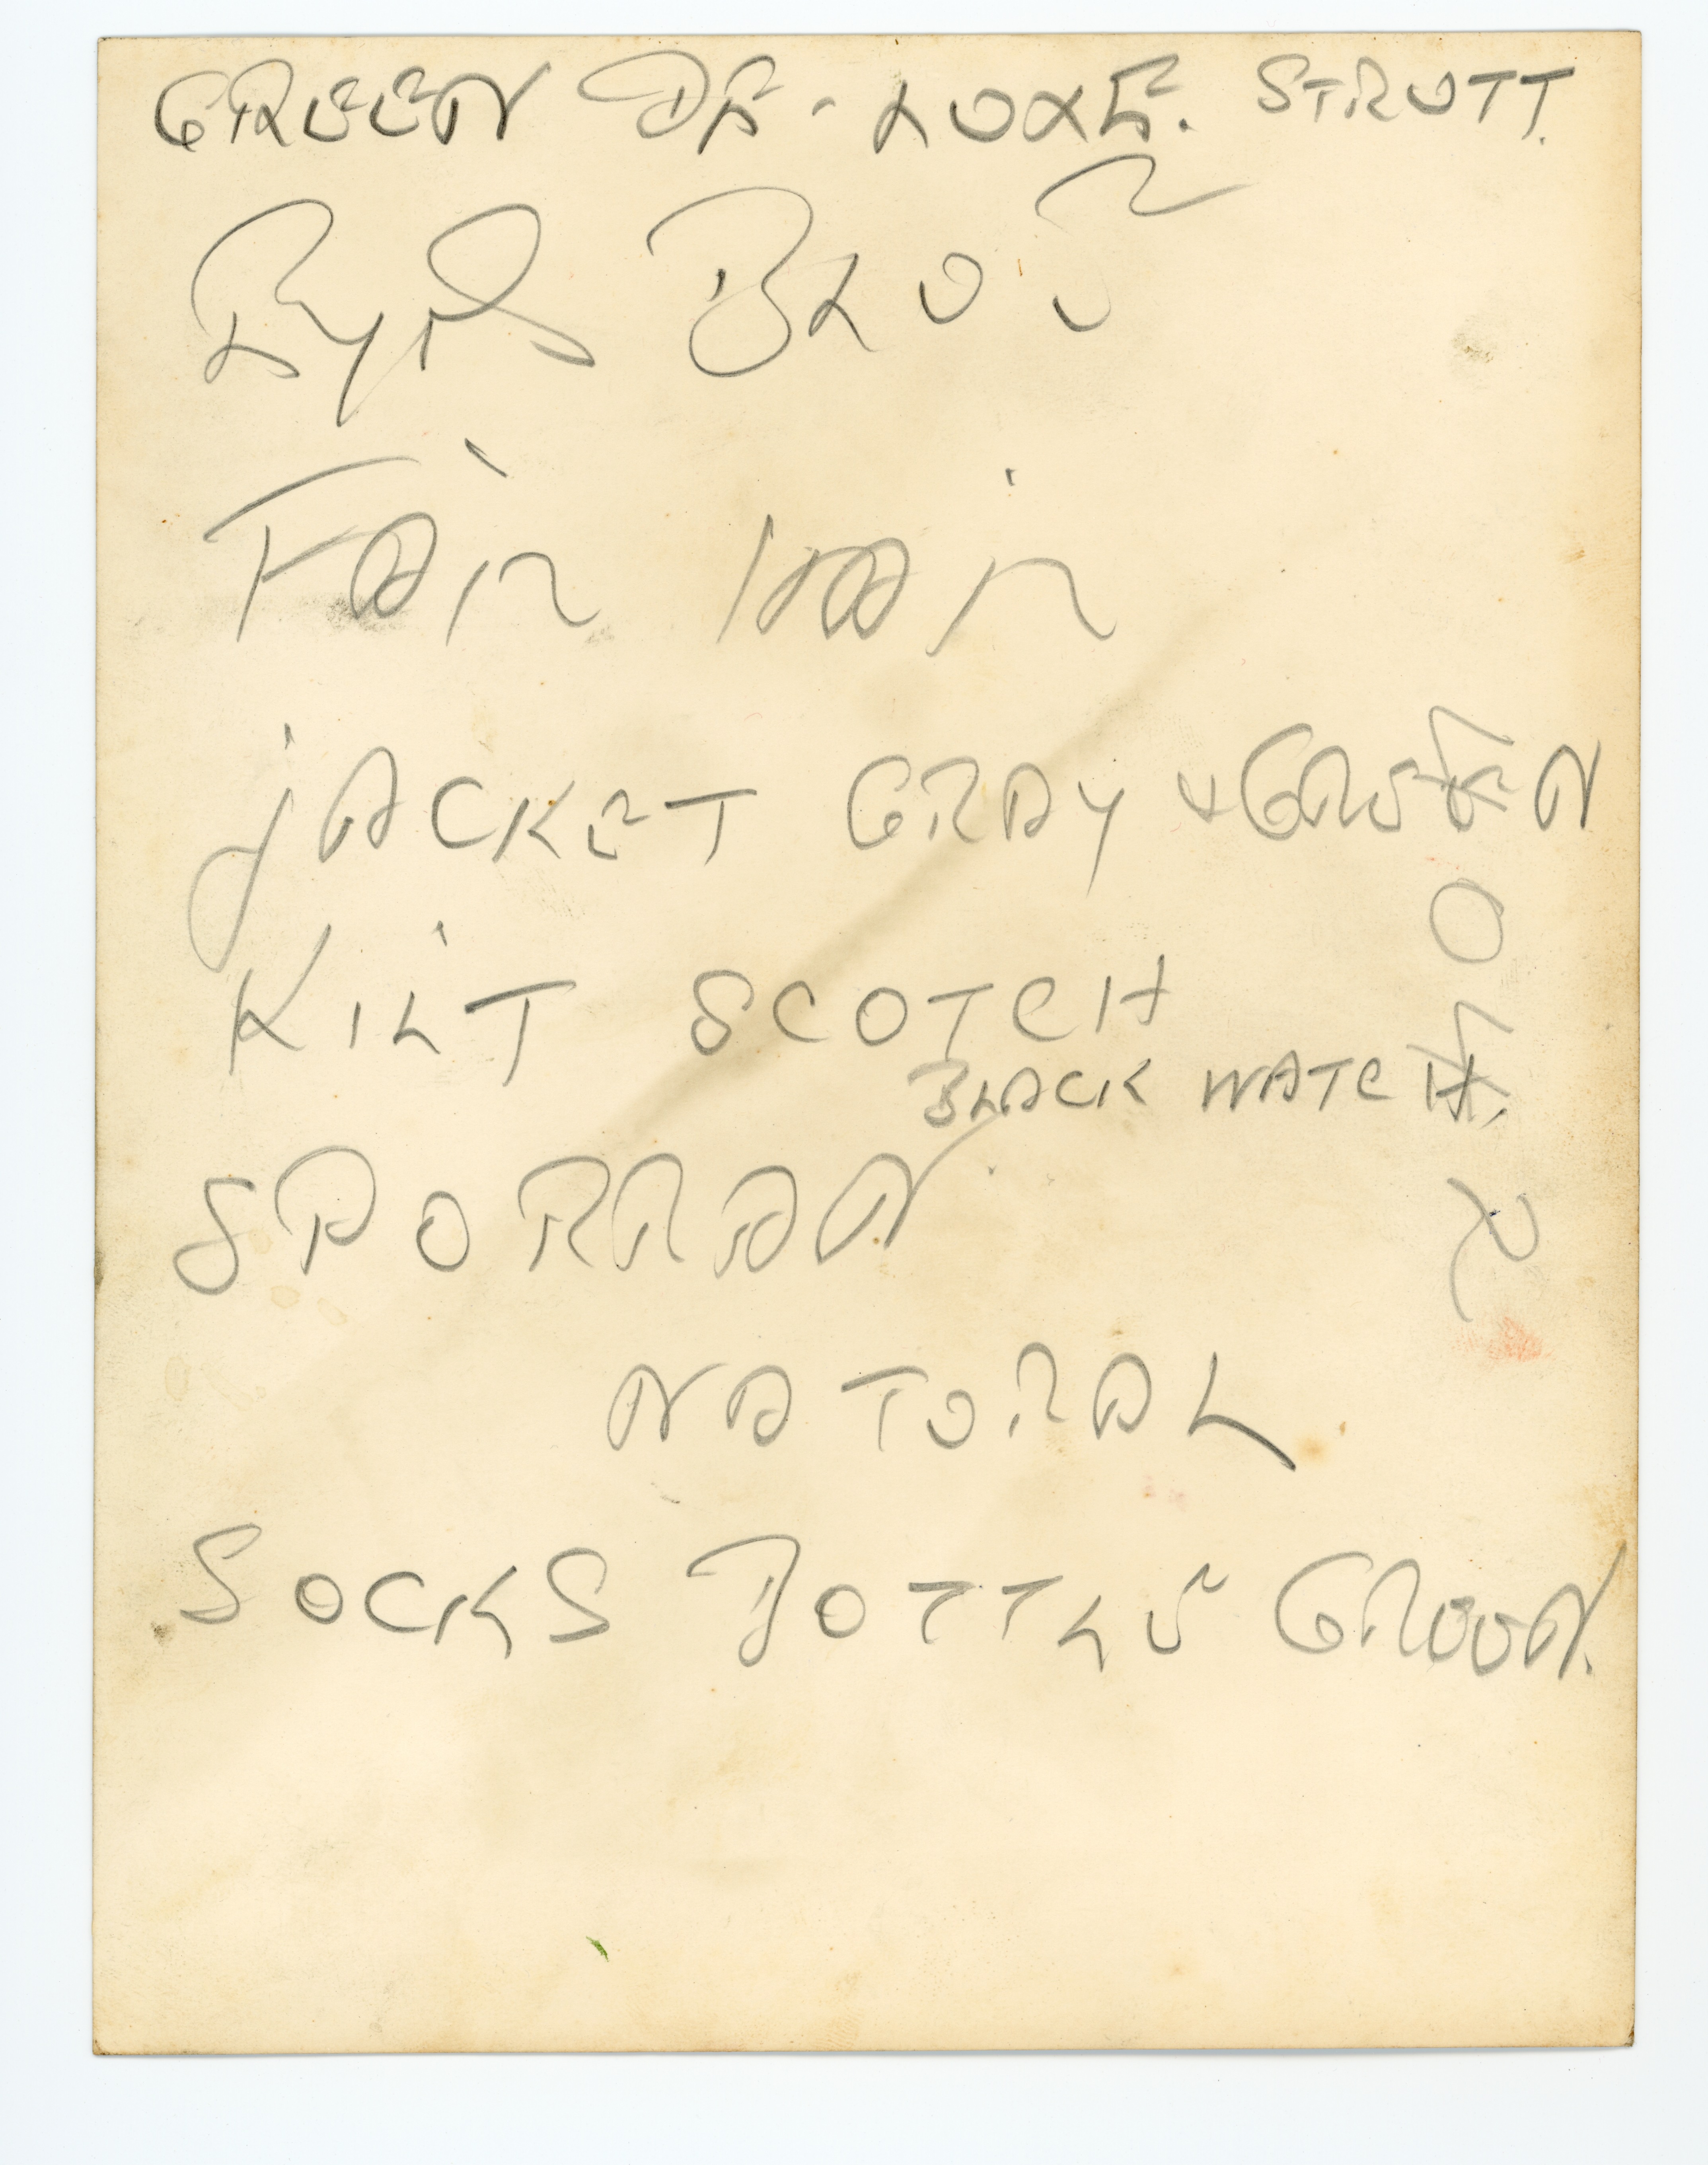 GREEN DE-LUXE. STRUTT.
Eyes BLUE
Fair Hair
JACKET GRAY & GREEN
KILT SCOTCH
BLACK WATCH.
SPORRAN
NATURAL
SOCKS BOTTLE GREEN.